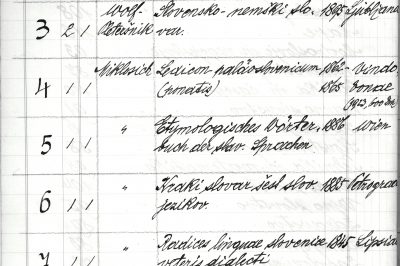 Wolf- Slovensko-nemški slo. 1895 Ljubljana
3 2 1 Pleteršnik var.
Miklosich Lexicon palaeoslovenicum 1862- Vindo,
4 1 1 1865 bonae
(1923, foto)
" Etymologisches Wörter, 1886 Wien
5 1 1 buch der slav. Sprachen
" Kratki slovar šest slov. 1885 Petrograd
6 1 1 jezikov.
" Radices linguae slovenicae 1845 Lipsiae
7 1 1 veteris dialecti